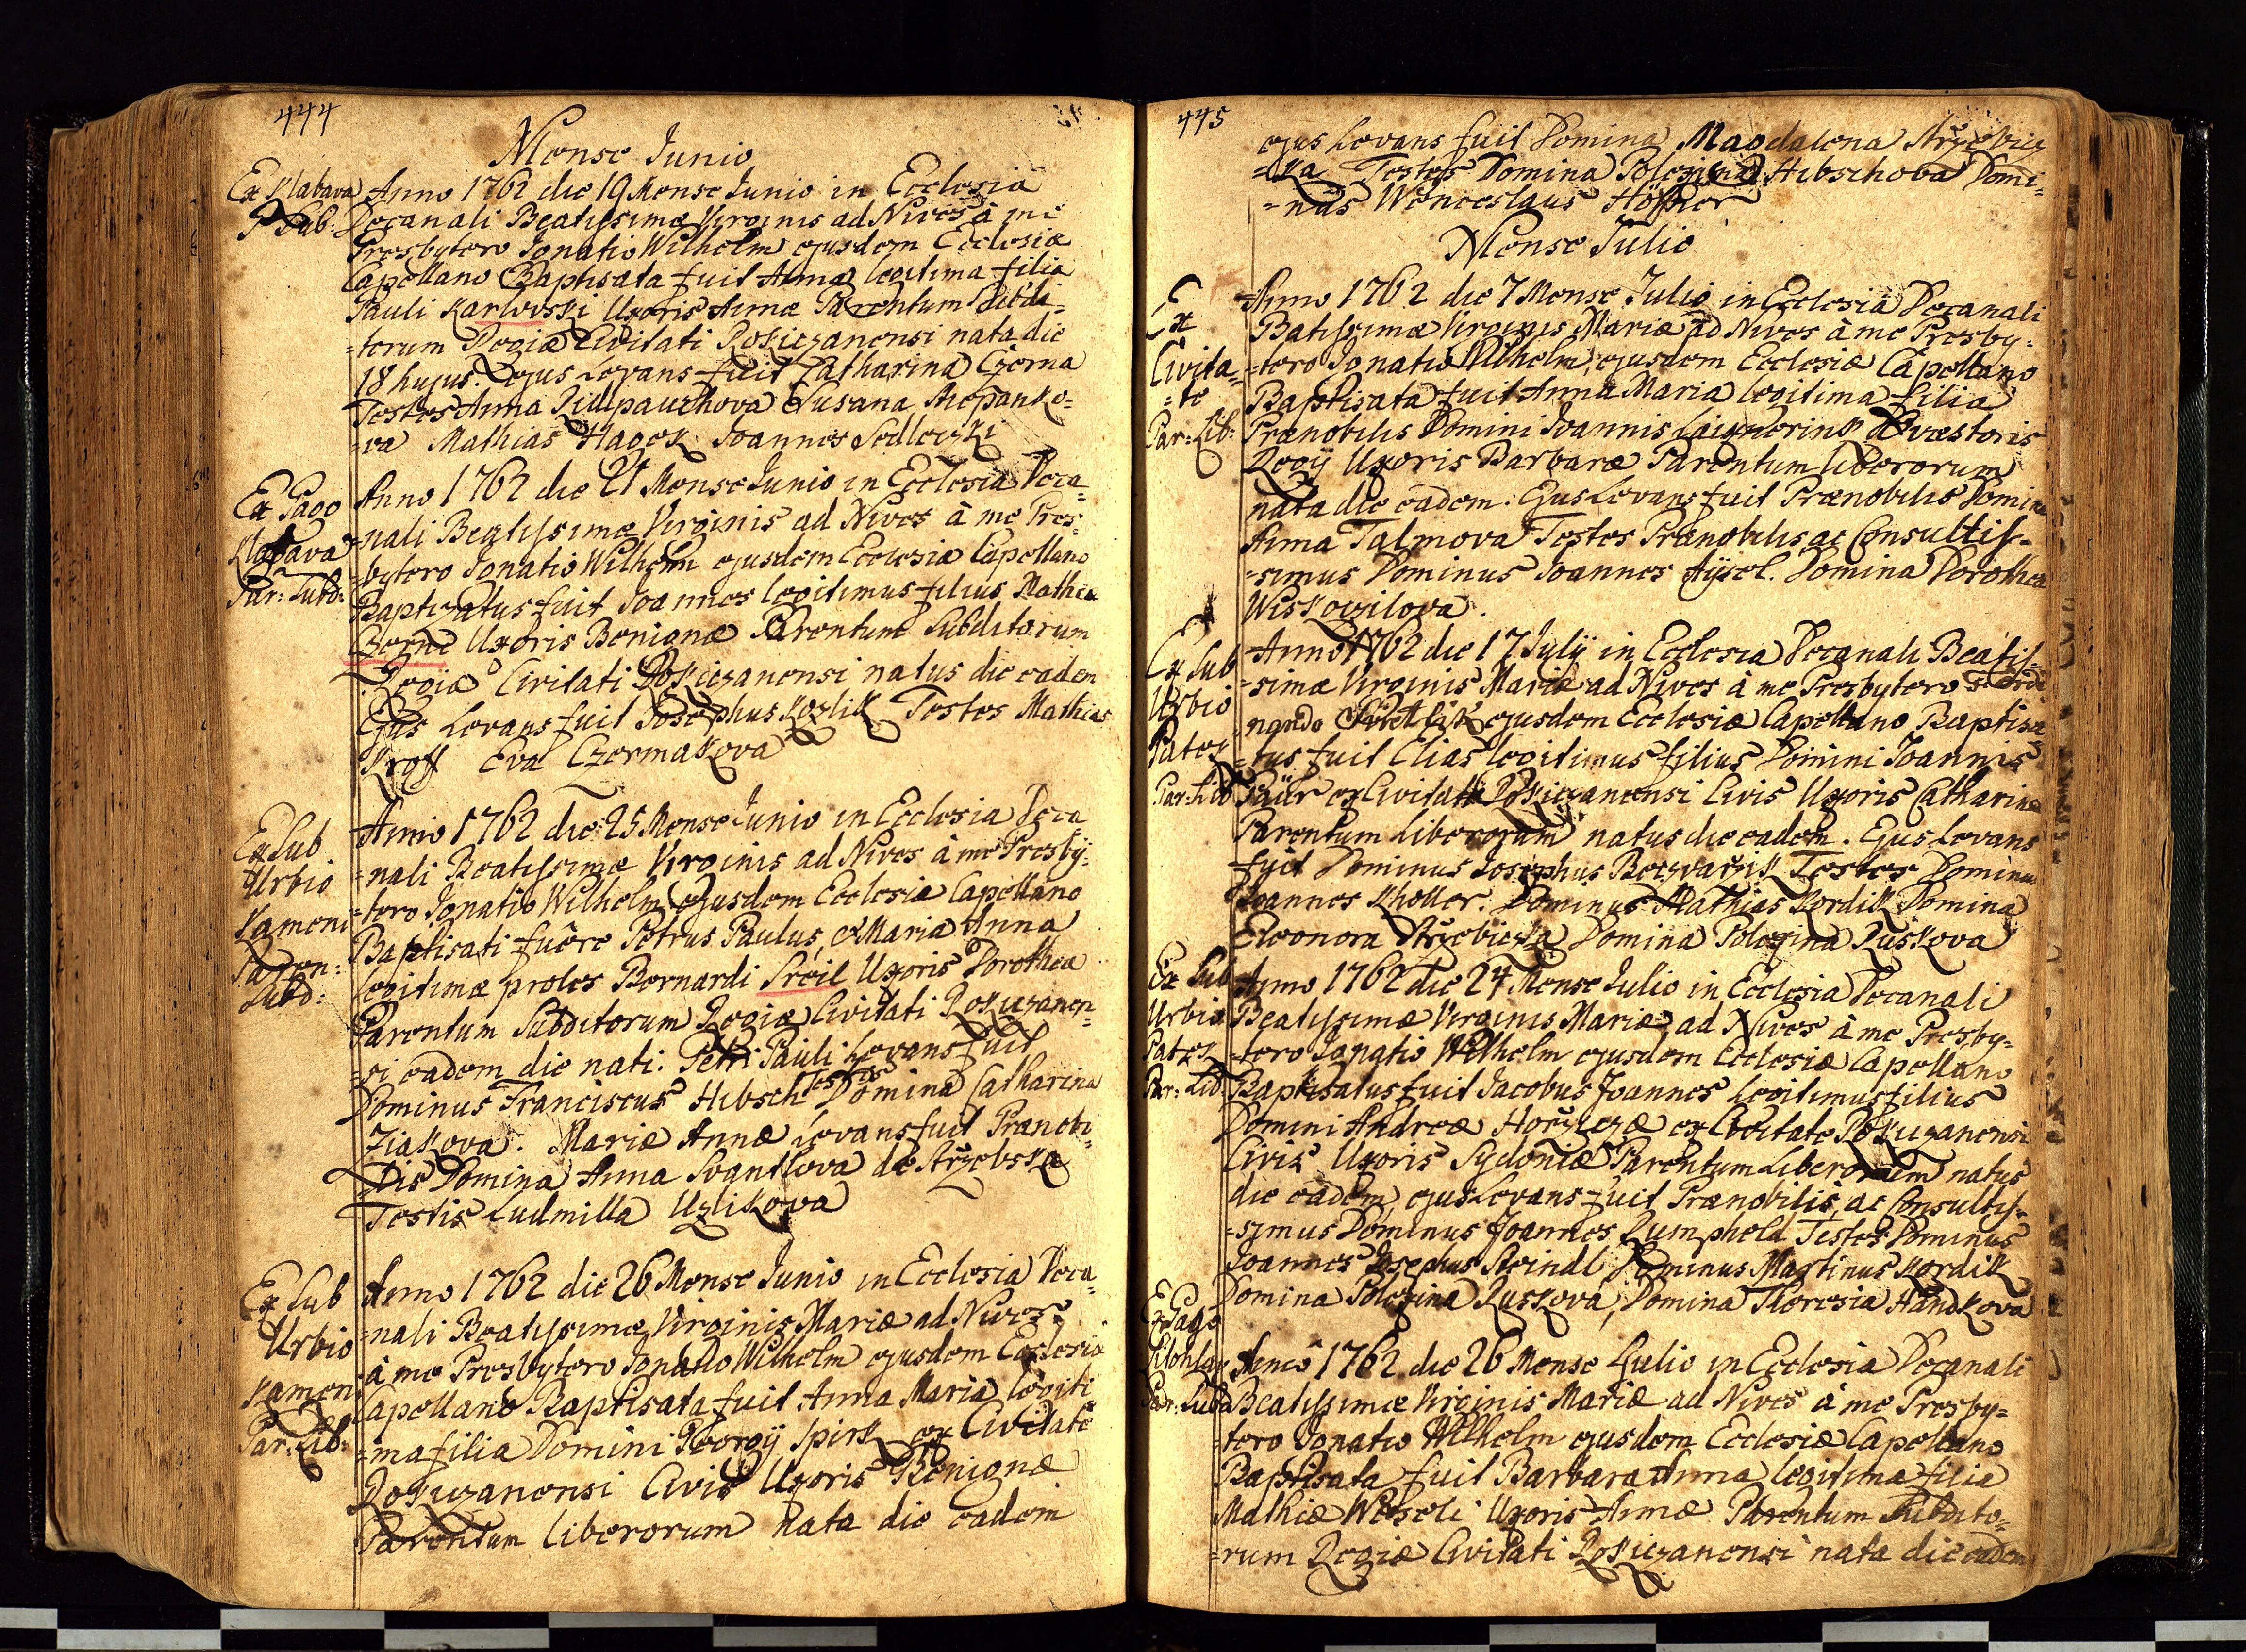 444
Mense Junio
Ex Klabava
P. Sub:
Anno 1762 die 19 Mense Junio in Ecclesia
Decanali Beatissimæ Virginis ad Nives à me
Presbytero Ignatio Wilhelm ejusdem Ecclesiæ
Capellano Baptisata fuit Anna legitima filia
Pauli Karlovski Uxoris Annæ Parentum Subdi=
=torum Regiæ Civitati Rokiczanensi nata die
18 hujus. Ejus Levans fuit Catharina Czerna
Testes Anna Susana Stiepanko=
=va Mathias Hagek Joannes Sedleczki
Ex Pago
Klabava
Par: Subd:
Anno 1762 die 21 Mense Junio in Ecclesia Deca=
=nali Beatissimæ Virginis ad Nives à me Pres=
=bytero Ignatio Wilhelm ejusdem Ecclesiæ Capellano
Baptizatus fuit Joannes legitimus filius Mathiæ
Czerne Uxoris Benignæ Parentum Subditorum
Regiæ Civitati Rokiczanensi natus die eadem
Ejus Levans fuit Josephus Kozlik Testes Mathias
Eva Czermakova
Ex Sub
Urbio
Kameni
Paren:
Subd:
Anno 1762 die 25 Mense Junio in Ecclesia Deca
=nali Beatissimæ Virginis ad Nives à me Presby=
=tero Ignatio Wilhelm Ejusdem Ecclesiæ Capellano
Baptisati fuêre Petrus Paulus, et Maria Anna
legitimæ proles Bernardi Sreil Uxoris Dorothea
Parentum Subditorum Regiæ Civitati Rokiczanen=
=si eadem die nati. Petri Pauli Levans fuit
Dominus Franciscus Hibsch Testis Domina Catharina
Ziakova. Mariæ Annæ Levans fuit Prænobi=
=lis Domina Anna de Strzebska
Testis Ludmilla Uzlikova
Ex Sub
Urbio
Kameni
Par: Lib:
Anno 1762 die 26 Mense Junio in Ecclesia Deca=
=nali Beatissimæ Virginis Mariæ ad Nives
à me Presbytero Ignatio Wilhelm ejusdem Ecclesiæ
Capellano Baptisata fuit Anna Maria legiti
=ma filia Domini Georgij Spirk ex Civitate
Rokiczanensi Civis Uxoris Benignæ
Parentum liberorum nata die eadem
445
ejus Levans fuit Domina Magdalena Strzebicz
=ka Testes Domina Polexina Hibschova Domi=
=nus Wenceslaus
Mense Julio
Ex
Civita=
=te
Par: Lib:
Anno 1762 die 7 Mense Julio in Ecclesia Decanali
Batissimæ Virginis Mariæ ad Nives à me Presby=
=tero Ignatio Wilhelm, ejusdem Ecclesiæ Capellano
Baptisata fuit Anna Maria legitima filia
Prænobilis Domini Joannis Quæstoris
Regij Uxoris Barbaræ Parentum liberorum
nata die eadem. Ejus Levans fuit Prænobilis Domina
Anna Talmova Testes Prænobilis ac Consultis=
=simus Dominus Joannes Aÿsel. Domina Dorothea
Wiskoczilova.
Ex Sub
Urbio
Pater
Par: Lib
Anno 1762 die 17 Julÿ in Ecclesia Decanali Beatis=
=simæ Virginis Mariæ ad Nives à me Presbytero Ferdi
nando ejusdem Ecclesiæ Capellano Baptiza
=tus fuit Elias legitimus filius Domini Joannis
Paür ex Civitate Rokiczanensi Civis Uxoris Catharinæ
Parentum Liberorum natus die eadem. Ejus Levans
fuit Dominus Josephus Testes Dominus
Joannes Kholler. Dominus Mathias Kordik Domina
Eleonora Strzebiczka Domina Polexina Ruskova
Ex Sub
Urbio
Pater
Par: Lib:
Anno 1762 die 24 Mense Julio in Ecclesia Decanali
Beatissimæ Virginis Mariæ ad Nives à me Presby=
=tero Ignatio Wilhelm ejusdem Ecclesiæ Capellano
Baptisatus fuit Jacobus Joannes legitimus filius
Domini Andreæ ex Civitate Rokiczanensi
Civis Uxoris Sydoniæ Parentum Liberorum natus
die eadem, ejus Levans fuit Prænobilis, ac Consultis=
=simus Dominus Joannes Rumpheld Testes Dominus
Joannes Josephus Steindl Dominus Martinus Kordik
Domina Polexina Ruskova, Domina Theresia Handkova
Ex Pago
Par: Subd
Anno 1762 die 26 Mense Julio in Ecclesia Decanali
Beatissimæ Virginis Mariæ ad Nives à me Presby=
tero Ignatio Wilhelm ejusdem Ecclesiæ Capellano
Baptisata fuit Barbara Anna legitima filia
Mathiæ Weseli Uxoris Annæ Parentum Subdito=
=rum Regiæ Civitati Rokiczanensi nata die eadem